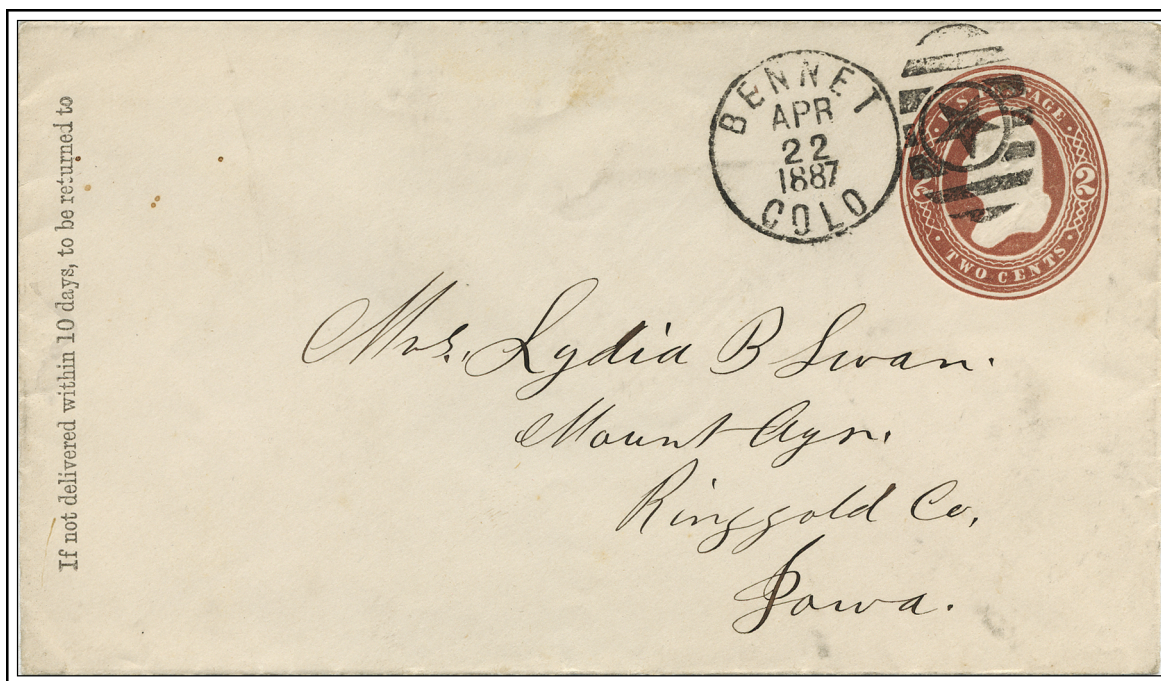 If not delivered within 10 days, to be returned to
BENNET
APR
22
1887
COLO
U.S. POSTAGE
2 2
TWO CENTS
Mrs. Lydia B Swan.
Mount Ayr.
Ringgold Co,
Iowa.